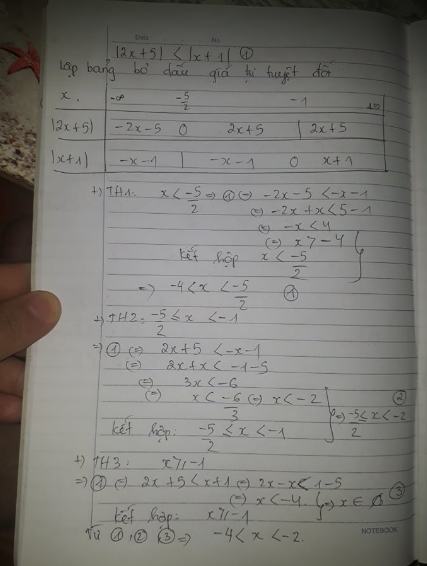 |2x+5| < |x+1| ①
Lập bảng bỏ dấu giá trị tuyệt đối
x -∞ -5/2 -1 +∞
|2x+5| -2x-5 0 2x+5 | 2x+5
|x+1| -x-1 | -x-1 0 x+1
+) TH1: x < -5/2 => ① (=) -2x-5 < -x-1
(=) -2x+x < 5-1
(=) -x < 4
(=) x > -4
kết hợp x < -5/2
=> -4 < x < -5/2 ①
+) TH2: -5/2 ≤ x < -1
=> ① (=) 2x+5 < -x-1
(=) 2x+x < -1-5
(=) 3x < -6
(=) x < -6/3 (=) x < -2
kết hợp: -5/2 ≤ x < -1 => -5/2 ≤ x < -2 ②
+) TH3: x ≥ -1
=> ① (=) 2x+5 < x+1 (=) 2x-x < 1-5
(=) x < -4
kết hợp: x ≥ -1 => x ∈ ∅ ③
Từ ①, ②, ③ => -4 < x < -2.
NOTEBOOK